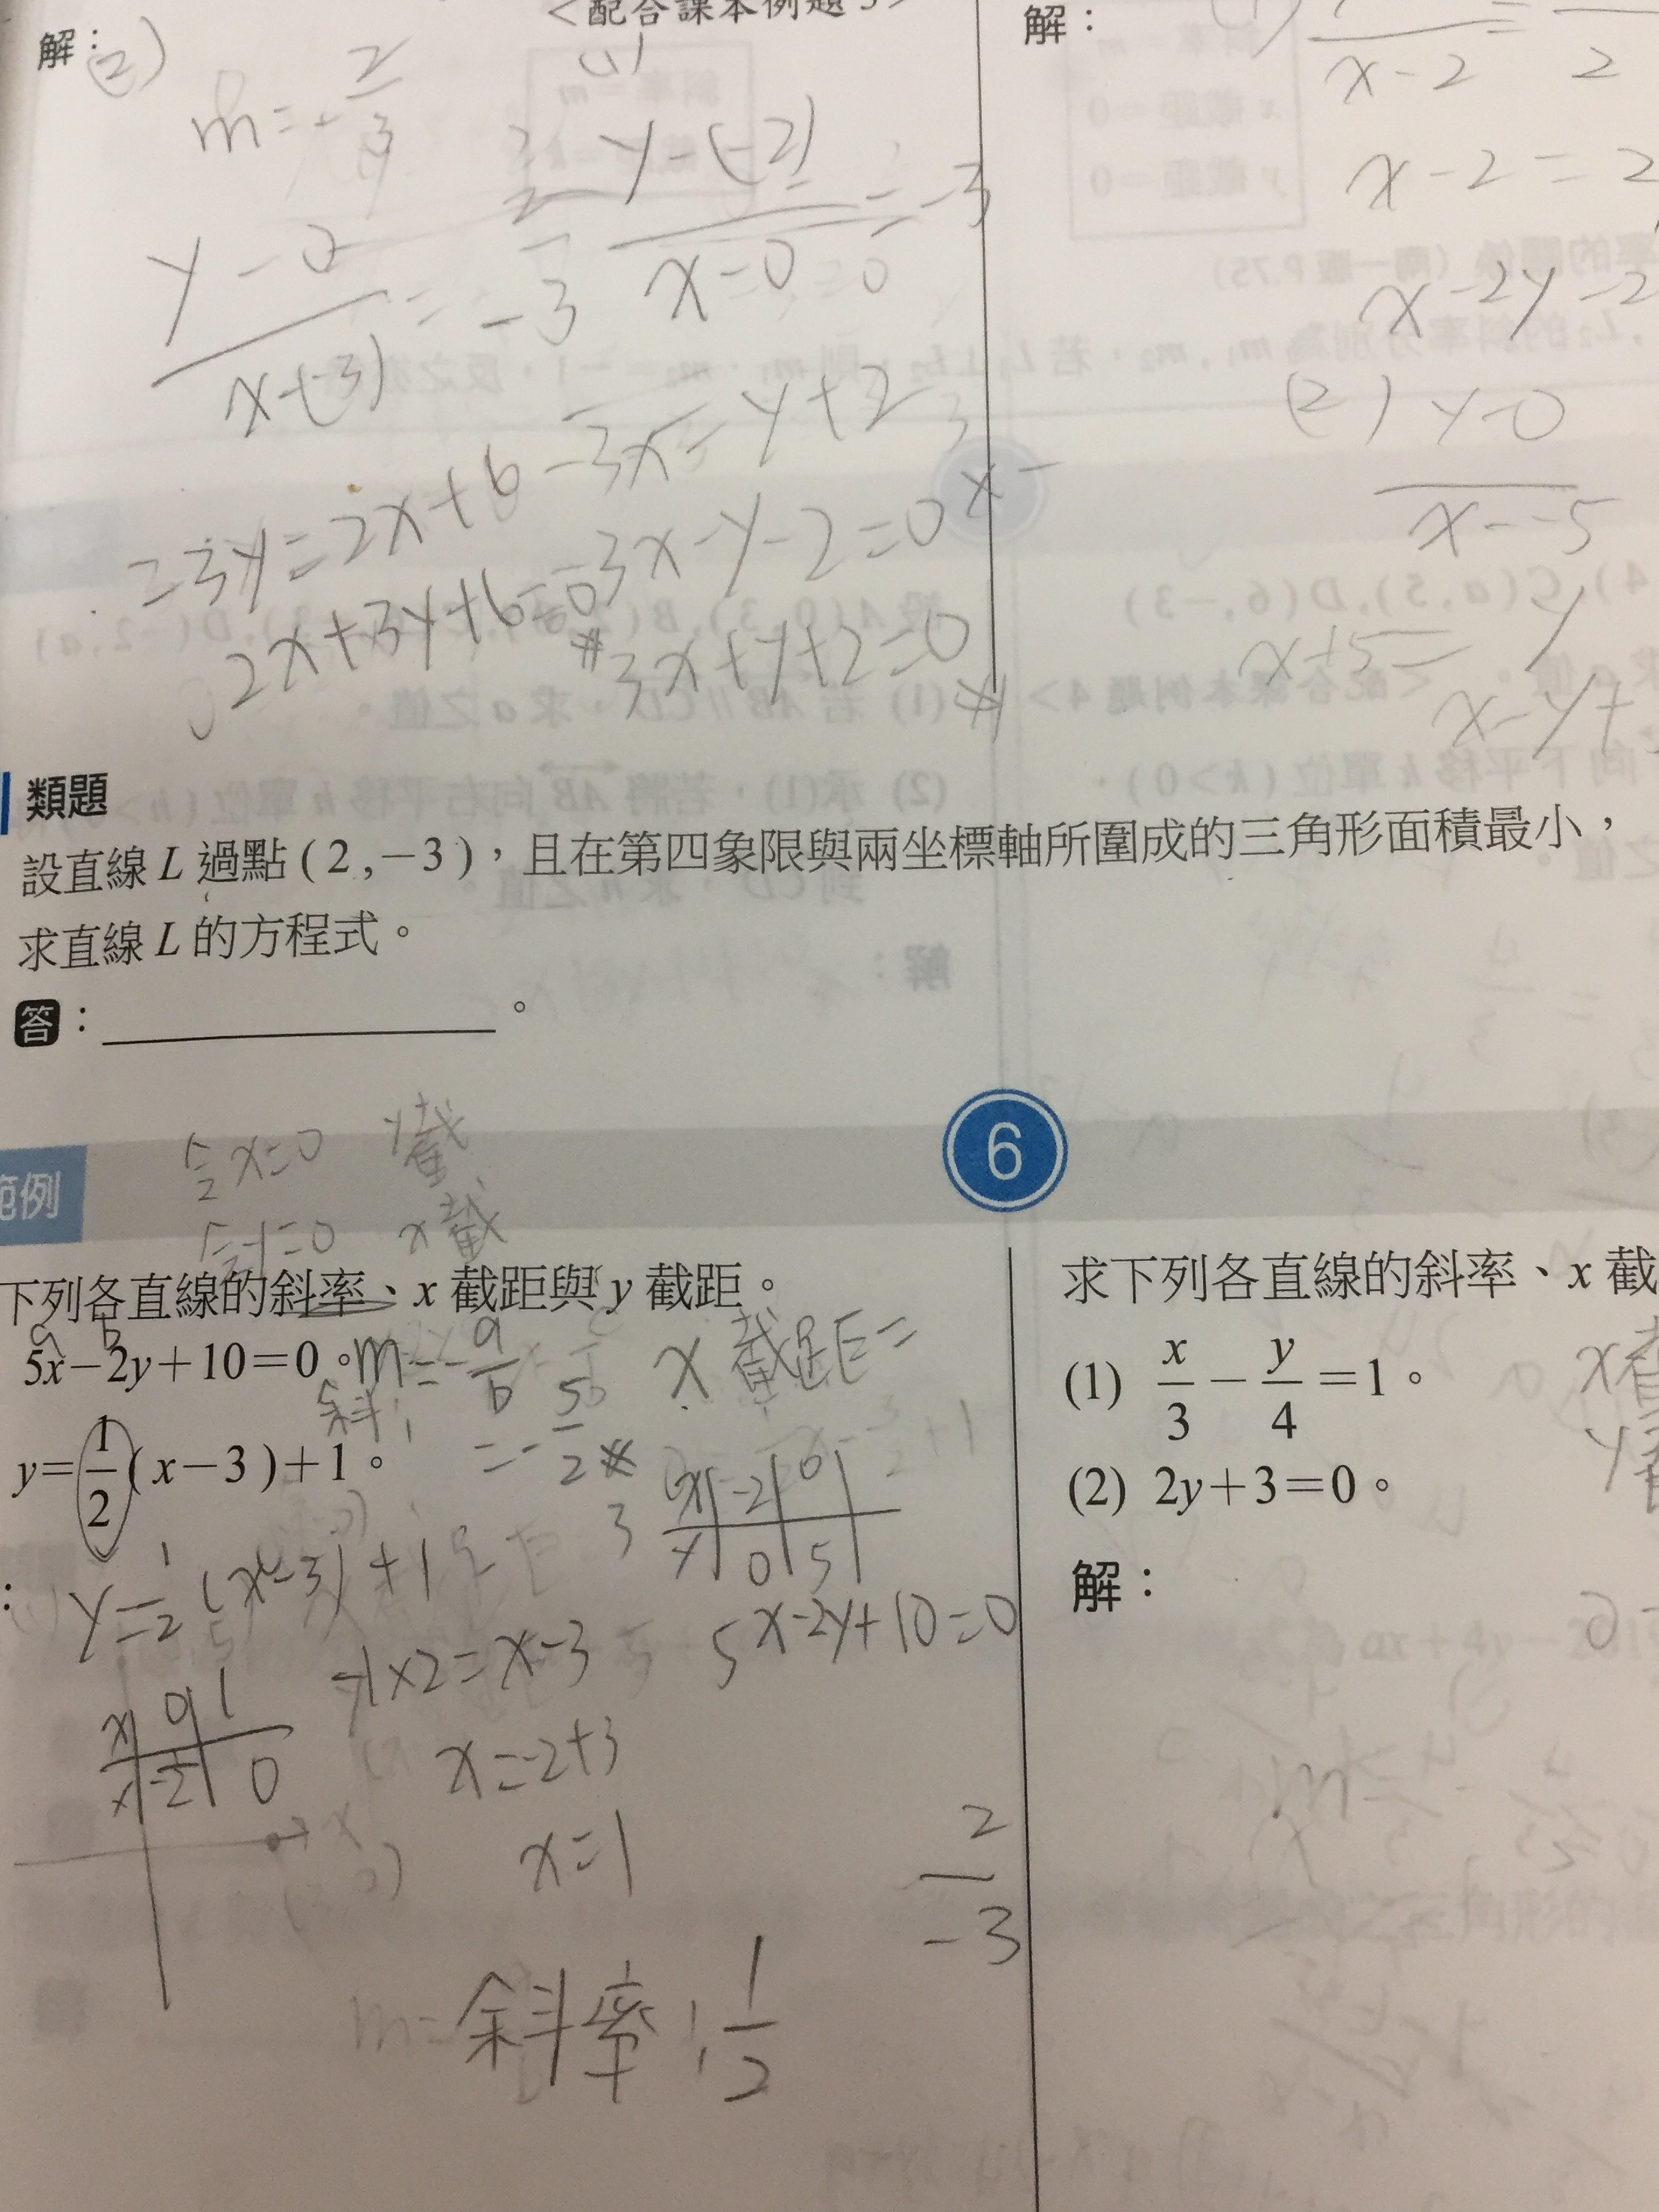 <配合課本例題5>
解：
(2)
m=-2/3
(1)
y-(-2)/x-0=-3
y-0/x-(-3)=
-3x=y+2
-3y=2x+6
-3x-y-2=0
2x+3y+6=0
3x+y+2=0
解：
x-2=2
x-2y-2
(2) y-0/x--5
x+5=y
x-y+
類題
設直線L過點(2,-3)，且在第四象限與兩坐標軸所圍成的三角形面積最小，
求直線L的方程式。
答：＿＿＿＿。
6
範例
x=0 y截
y=0 x截
下列各直線的斜率、x截距與y截距。
5x-2y+10=0。
m=-a/b
斜
=-5/2
x截距=
y=1/2(x-3)+1。
x -2 0
y 0 5
y=1/2(x-3)+1
5x-2y+10=0
-1×2=x-3
x 0 1
x=-2+3
x=1
2/-3
斜率:1/2
求下列各直線的斜率、x截
(1) x/3-y/4=1。
(2) 2y+3=0。
解：